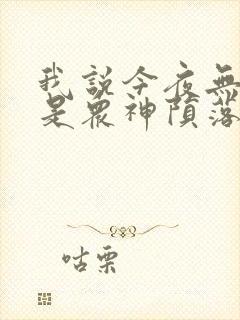 我說今夜無
是眾神隕落
咕栗